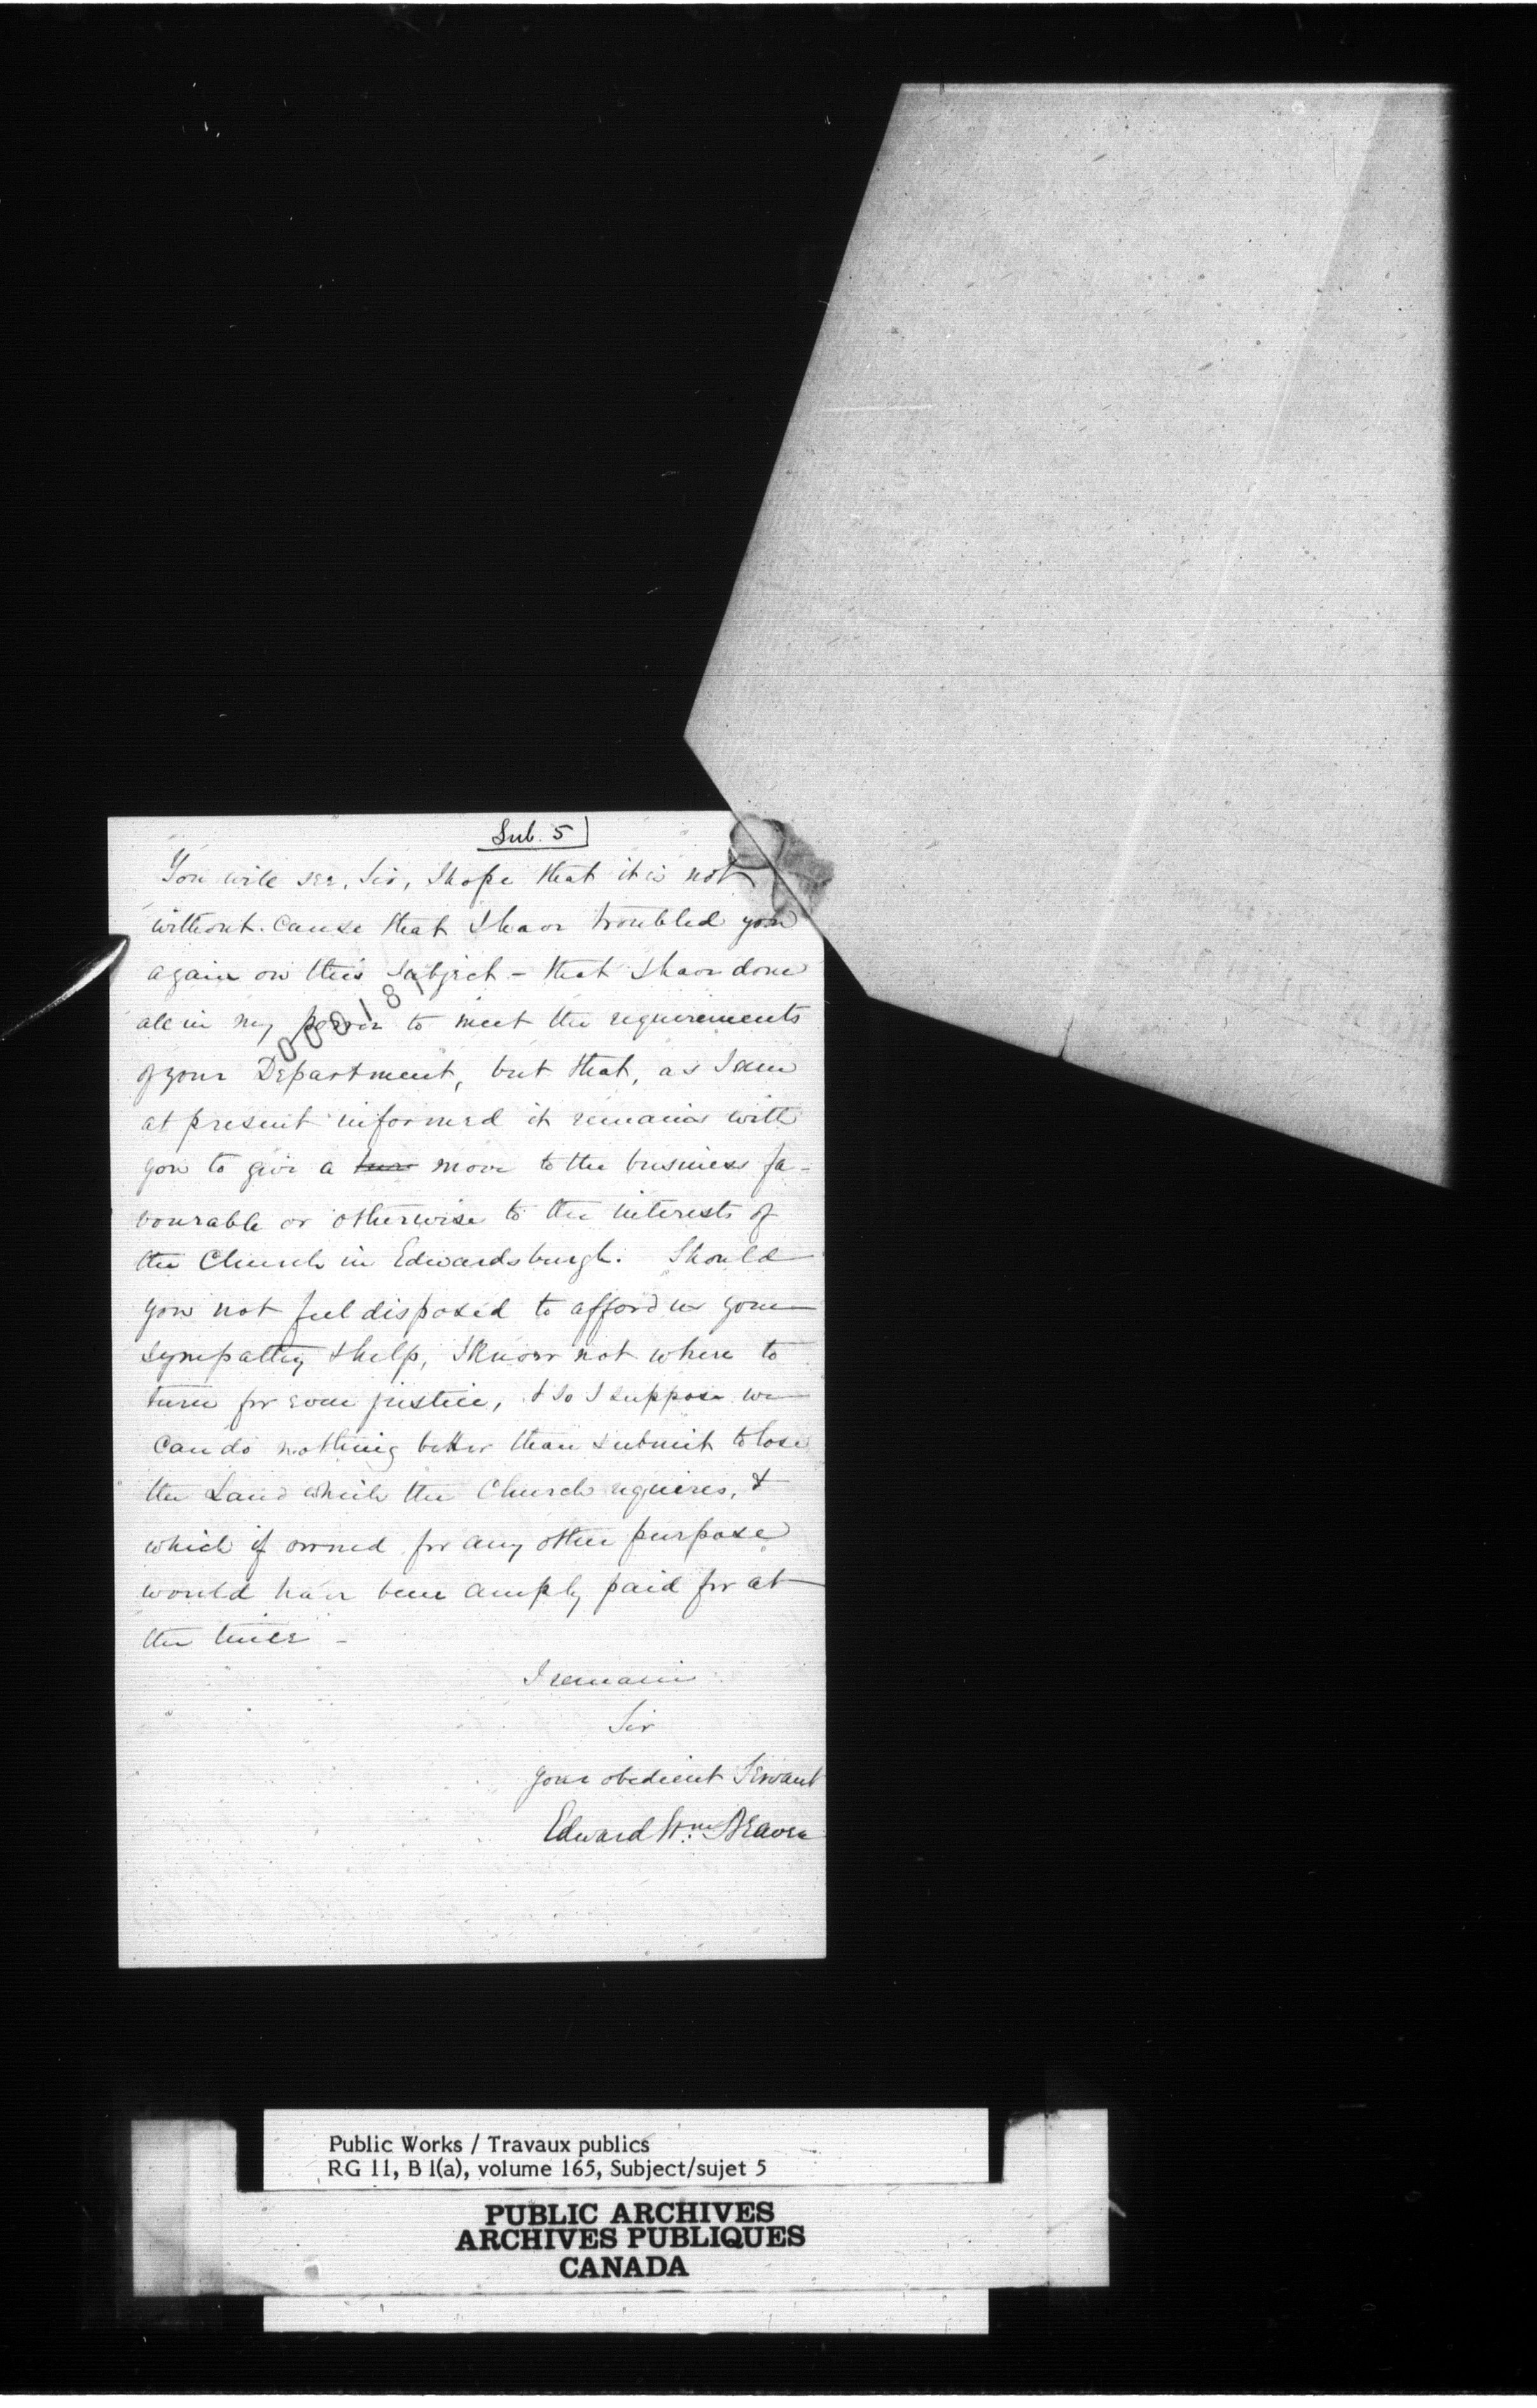 Sub. 5
You will see, Sir, I hope that it is not
without cause that I have troubled you
again on this subject - that I have done
all in my power to meet the requirements
000181
of your Department, but that, as I am
at present informed it remains with
you to give a move to the business fa-
vourable or otherwise to the interests of
the Church in Edwardsburgh. Should
you not feel disposed to afford us your
sympathy & help, I know not where to
turn for even justice, & so I suppose we
can do nothing better than submit to lose
the Land which the Church requires, &
which if owned for any other purpose
would have been amply paid for at
the time -
I remain
Sir
your obedient Servant
Edward Wm. Beaven
Public Works / Travaux publics
RG 11, B 1(a), volume 165, Subject/sujet 5
PUBLIC ARCHIVES
ARCHIVES PUBLIQUES
CANADA